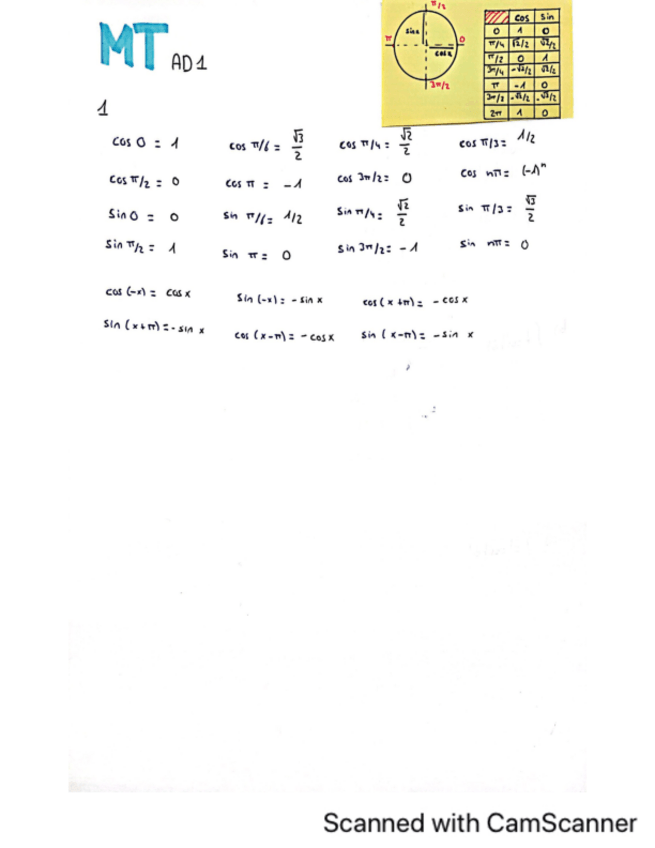 MT AD1
π/2
π
sin x
cos x
0
3π/2
cos sin
0 1 0
π/4 √2/2 √2/2
π/2 0 1
3π/4 -√2/2 √2/2
π -1 0
3π/2 -√2/2 -√2/2
2π 1 0
1
cos 0 = 1 cos π/6 = √3/2 cos π/4 = √2/2 cos π/3 = 1/2
cos π/2 = 0 cos π = -1 cos 3π/2 = 0 cos nπ = (-1)ⁿ
sin 0 = 0 sin π/6 = 1/2 sin π/4 = √2/2 sin π/3 = √3/2
sin π/2 = 1 sin π = 0 sin 3π/2 = -1 sin nπ = 0
cos (-x) = cos x sin (-x) = -sin x cos (x+π) = -cos x
sin (x+π) = -sin x cos (x-π) = -cos x sin (x-π) = -sin x
Scanned with CamScanner